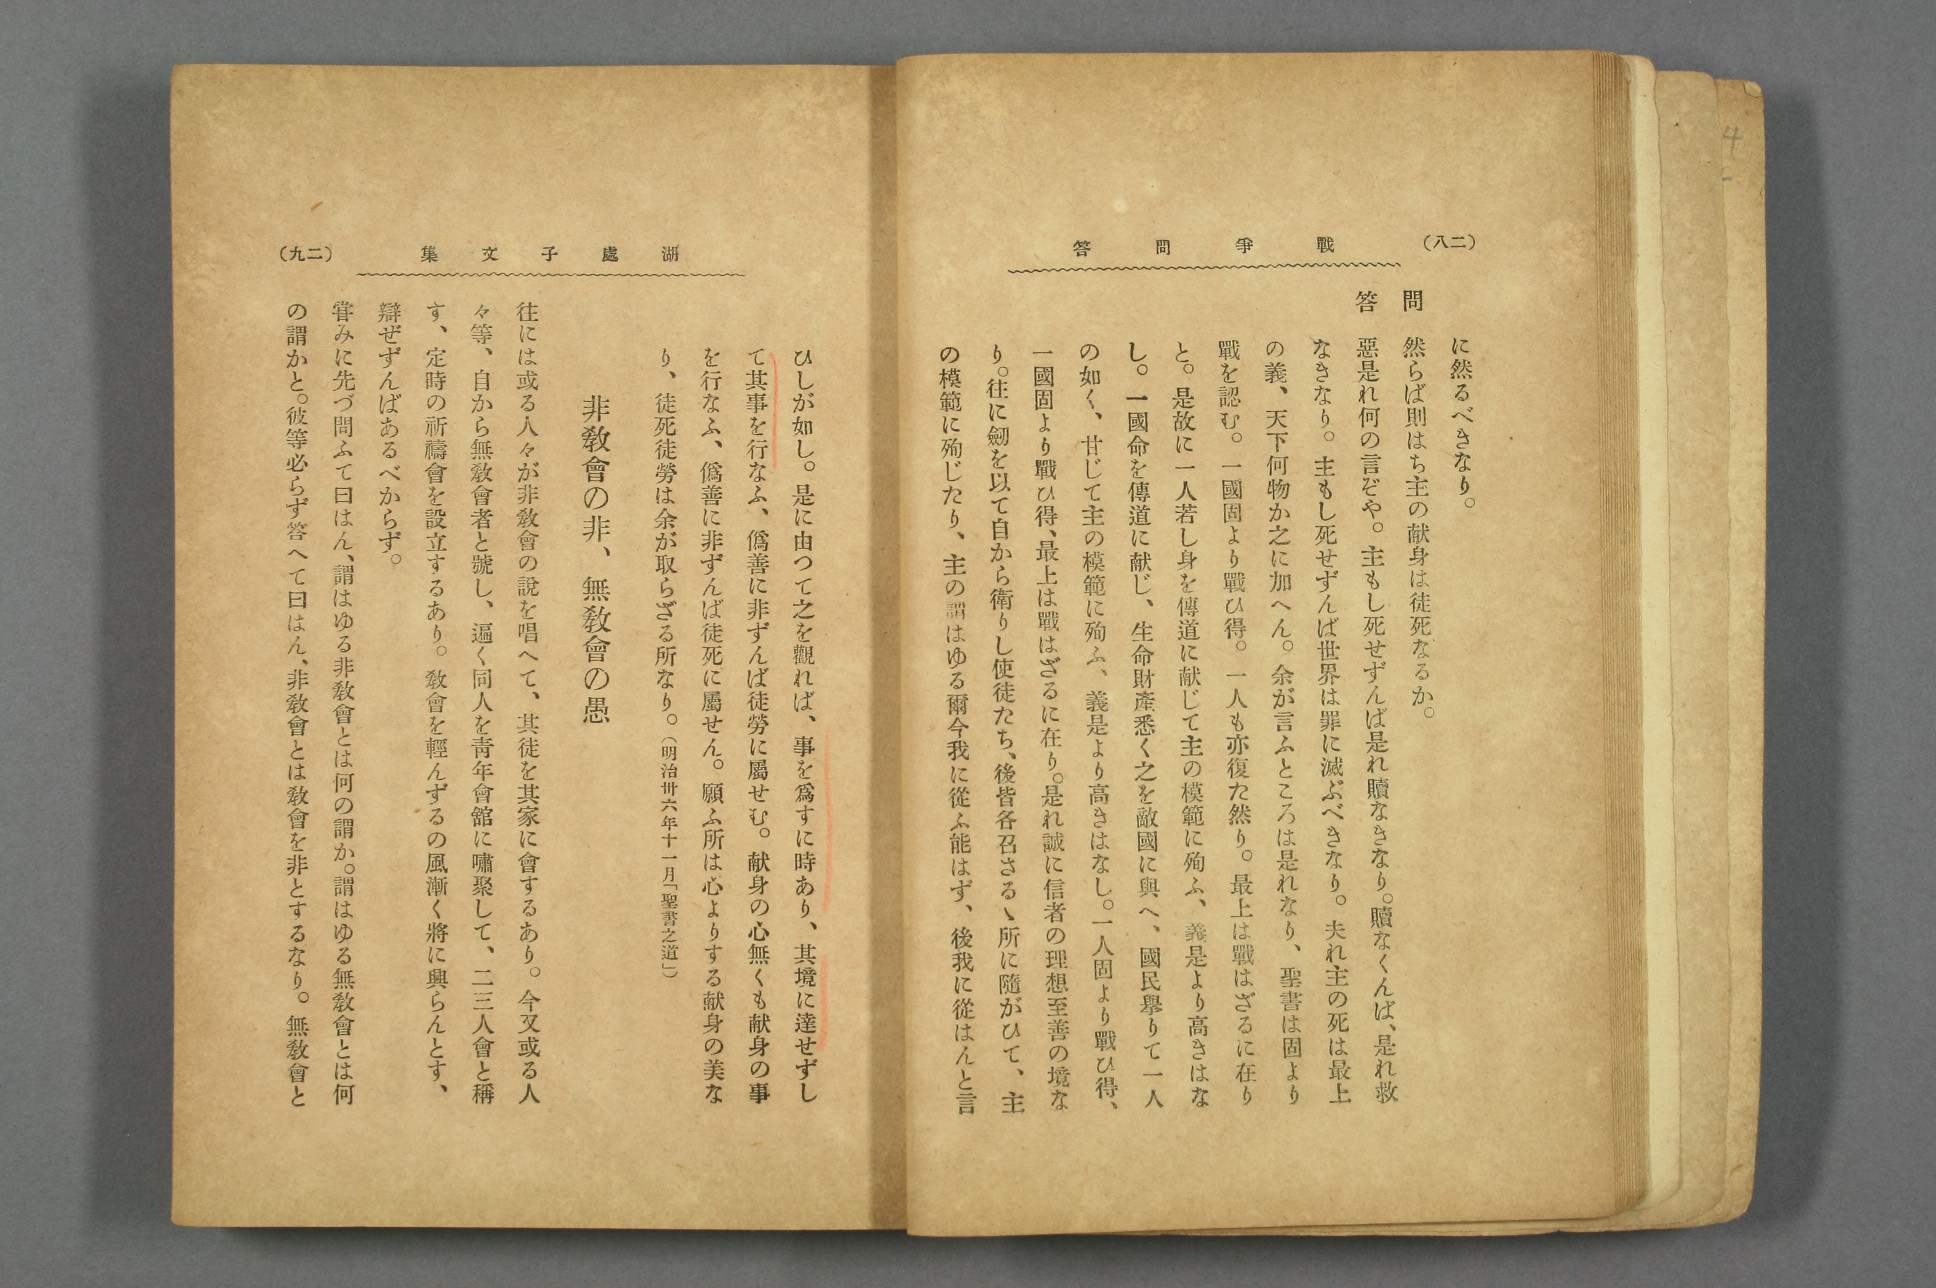 （二八）
戰爭問答
に然るべきなり。
問　然らば則はち主の献身は徒死なるか。
答　惡是れ何の言ぞや。主もし死せずんば是れ贖なきなり。贖なくんば、是れ救
なきなり。主もし死せずんば世界は罪に滅ぶべきなり。夫れ主の死は最上
の義、天下何物か之に加へん。余が言ふところは是れなり、聖書は固より
戰を認む。一國固より戰ひ得。一人も亦復た然り。最上は戰はざるに在り
と。是故に一人若し身を傳道に献じて主の模範に殉ふ、義是より高きはな
し。一國命を傳道に献じ、生命財産悉く之を敵國に與へ、國民擧りて一人
の如く、甘じて主の模範に殉ふ、義是より高きはなし。一人固より戰ひ得、
一國固より戰ひ得、最上は戰はざるに在り。是れ誠に信者の理想至善の境な
り。往に劒を以て自から衛りし使徒たち、後皆各召さるゝ所に隨がひて、主
の模範に殉じたり、主の謂はゆる爾今我に從ふ能はず、後我に從はんと言
湖處子文集
（二九）
ひしが如し。是に由つて之を觀れば、事を爲すに時あり、其境に達せずし
て其事を行なふ、僞善に非ずんば徒勞に屬せむ。献身の心無くも献身の事
を行なふ、僞善に非ずんば徒死に屬せん。願ふ所は心よりする献身の美な
り、徒死徒勞は余が取らざる所なり。（明治卅六年十一月「聖書之道」）
非敎會の非、無敎會の愚
往には或る人々が非敎會の說を唱へて、其徒を其家に會するあり。今又或る人
々等、自から無敎會者と號し、遍く同人を靑年會舘に嘯聚して、二三人會と稱
す、定時の祈禱會を設立するあり。敎會を輕んずるの風漸く將に興らんとす、
辯ぜずんばあるべからず。
甞みに先づ問ふて曰はん、謂はゆる非敎會とは何の謂か。謂はゆる無敎會とは何
の謂かと。彼等必らず答へて曰はん、非敎會とは敎會を非とするなり。無敎會と